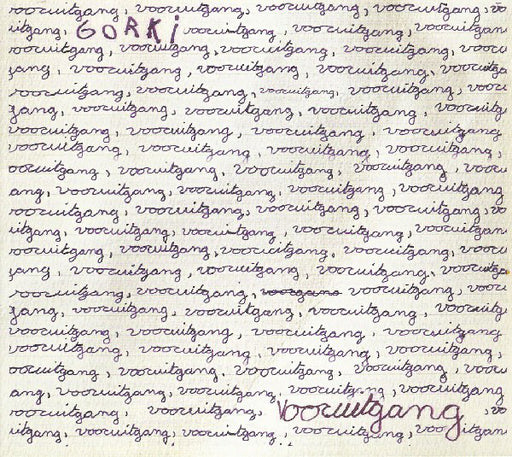 vooruitgang, vooruitgang, vooruitgang, vooruitgang, vo
uitgang, GORKi vooruitgang, vooruitgang, vooruitgan
vooruitgang, vooruitgang, vooruitgang, vooruitgang, vooru
gang, vooruitgang, vooruitgang, vooruitgang, vooruitga
vooruitgang, vooruitgang, vooruitgang, vooruitgang, vooru
gang, vooruitgang, vooruitgang, vooruitgang, vooruitg
vooruitgang, vooruitgang, vooruitgang, vooruitgang
vooruitgang, vooruitgang, vooruitgang, vooruitgang,
ooruitgang, vooruitgang, vooruitgang, vooruitgang, vooru
ang, vooruitgang, vooruitgang, vooruitgang, vooruitgang
vooruitgang, vooruitgang, vooruitgang, vooruitgang, vo
uitgang, vooruitgang, vooruitgang, vooruitgang, vooruitgan
vooruitgang, vooruitgang, vooruitgang, vooruitgang, voor
gang, vooruitgang, vooruitgang, vooruitgang, vooruitga
vooruitgang, vooruitgang, voorgang vooruitgang, vooru
gang, vooruitgang, vooruitgang, vooruitgang, vooruitg
vooruitgang, vooruitgang, vooruitgang, vooruitgang
vooruitgang, vooruitgang, vooruitgang, vooruitgang,
ooruitgang, vooruitgang, vooruitgang, vooruitgang, vooru
ang, vooruitgang, vooruitgang, vooruitgang, vooruitgang
vooruitgang, vooruitgang, Vooruitgang, vo
uitgang, vooruitgang, vooruitgang, vooruitgang, vooruitgan